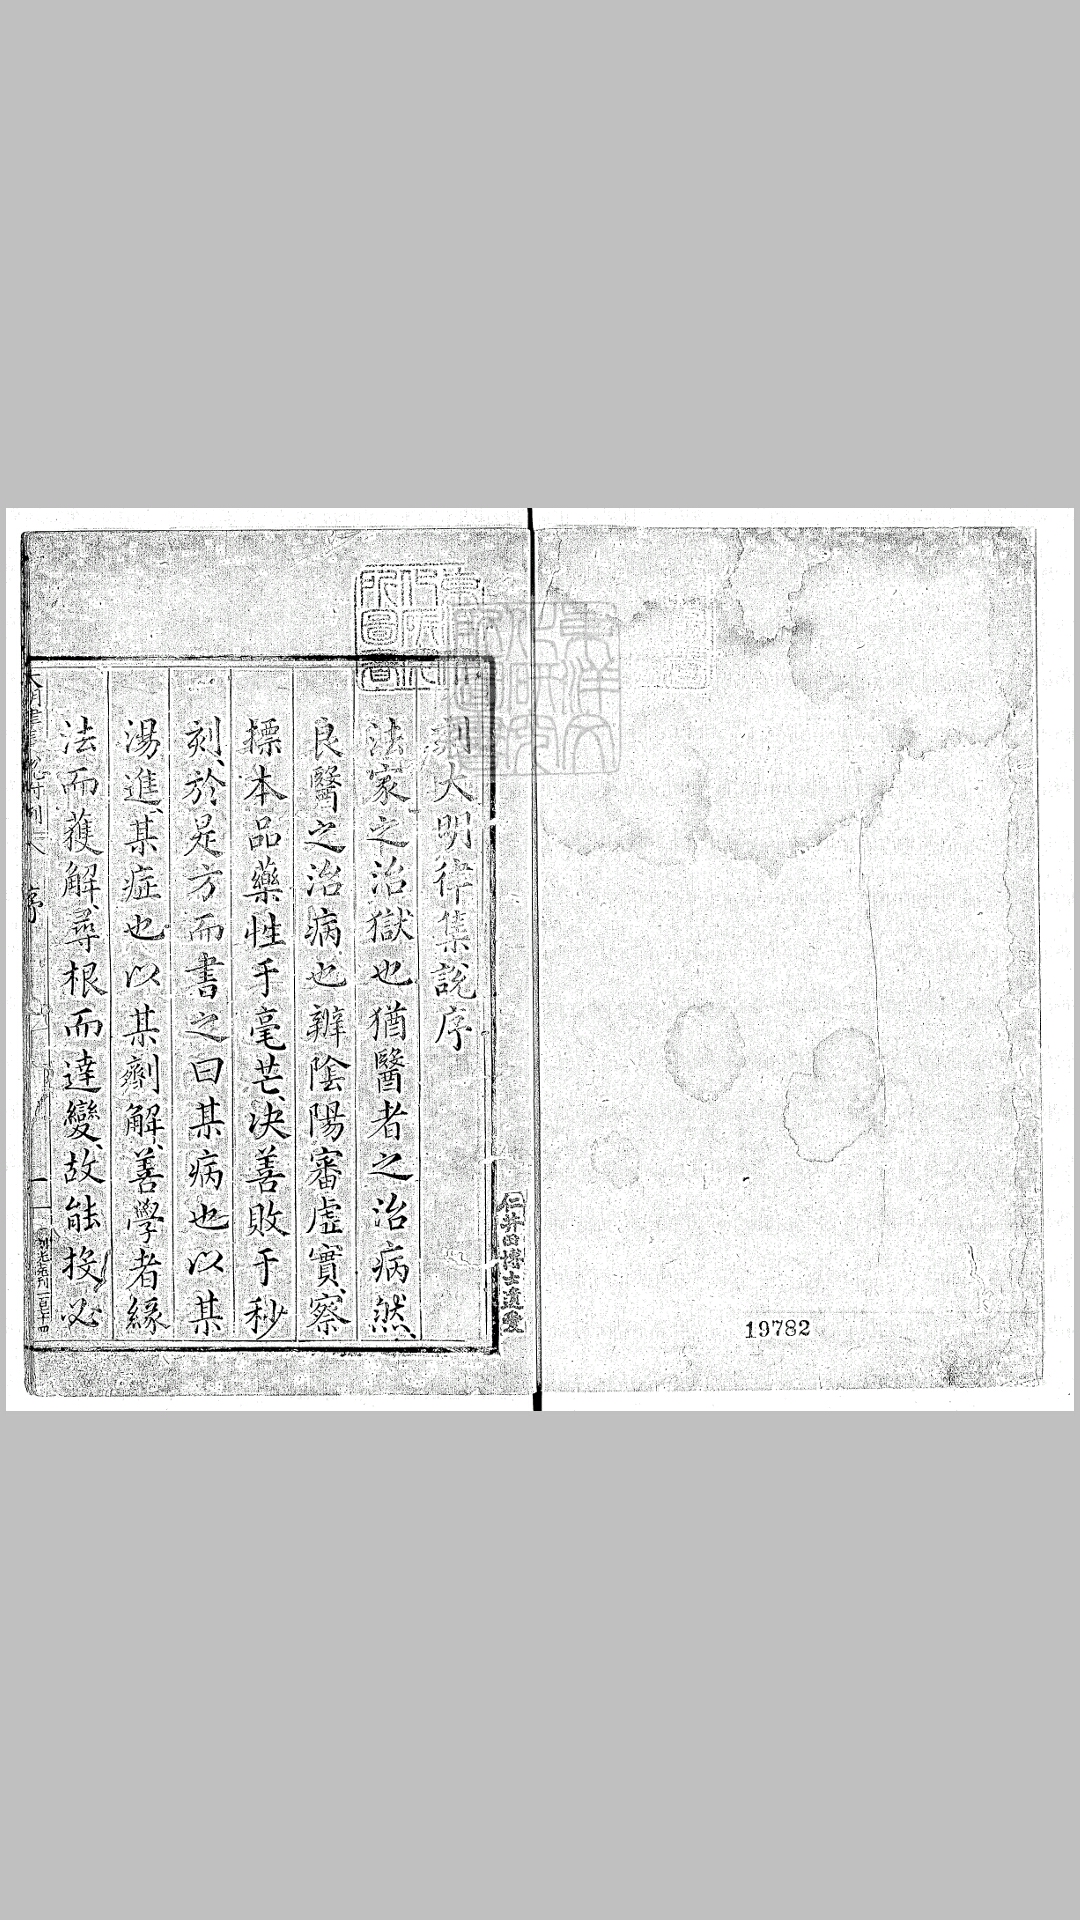 刻大明律集說序
法家之治獄也猶醫者之治病然
良醫之治病也辨陰陽審虛實察
摽本品藥性于毫芒決善敗于秒
刻於是方而書之曰某病也以某
湯進某症也以某劑解善學者緣
法而獲解尋根而達變故能投必
序
一
仁井田博士遺愛
東洋文化研究所圖書
19782